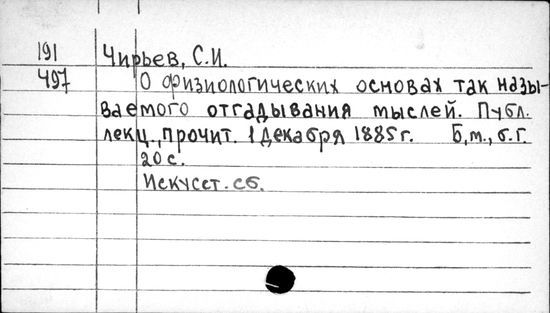 191 Чирьев, С.И.
497 О физиологических основах так назы-
ваемого отгадывания мыслей. Публ.
лекц., прочит. 1 декабря 1885 г. Б.м., б.г.
20 с.
Искусст. сб.